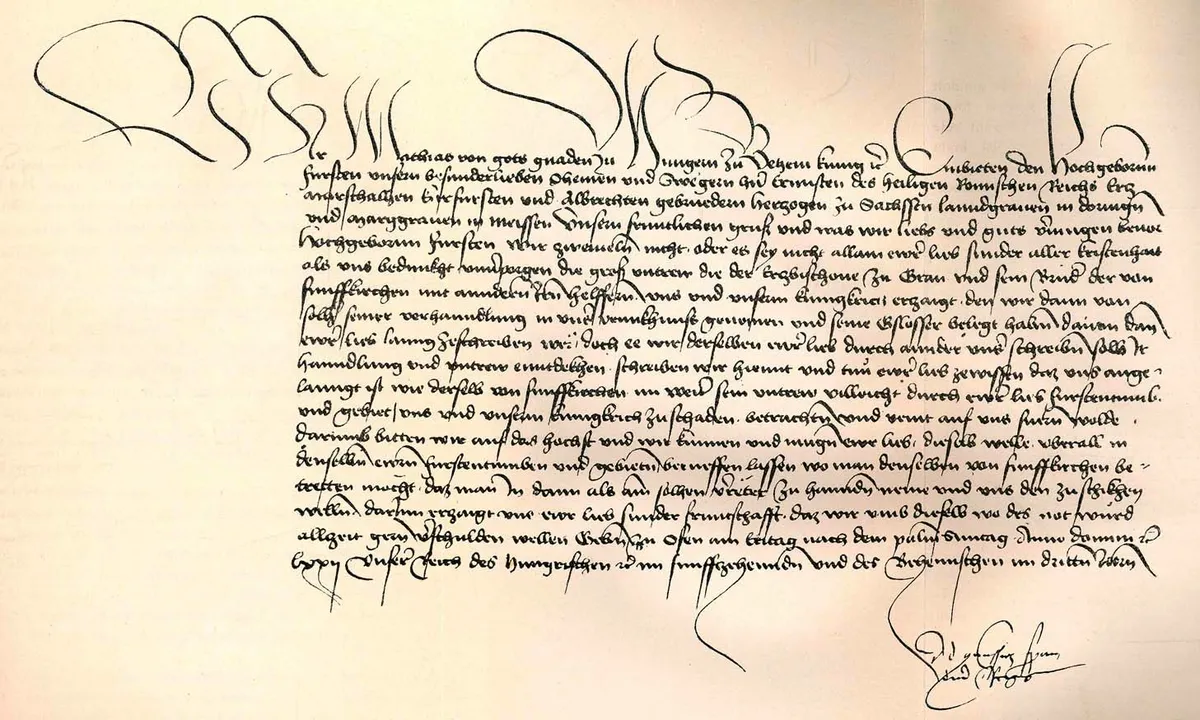 Wir Mathias von gots gnaden zu Hungern zu Behem kunig etc Embieten den Hochgebornn
fursten unsern besunderlieben Ohemen und Swegern hern Ernnsten des Heiligen Romischen Reichs Ertz
marschalhen kurfursten und Albrechten gebrudern Herzogen zu Sachssen lanndgrauen in doringn
vnd marggrauen in meissen Unsern fruntlichen grus und was wir liebs und guts vermugen beuor
Hochgebornn fursten wir zweiueln nicht oder es sey nicht allain ewr lieb sunder aller kristenhait
als uns bedunkht unuerporgen die gros untrew die der Ertzbischoue zu Gran und sein Bruder der von
funffkirchen mit anndern iren helffern uns und unserm kunigkreich erzaigt den wir dann von
solh seiner verhanndlung in unser vennkhnus genomen und seine Gslosser belegt habm dauon dan
ewr lieb lanng zeschreiben wer doch ee wir derselben ewr lieb durch annder unser schreibn solh Ir
hanndlung und untrew enntdekhen schreiben wir hiemit und tun ewr lieb zewissen daz uns ange-
lanngt ist wie derselb von funffkirchen im wern sein untrew villeicht durch ewr lieb furstentumb
und gebiet uns und unserm kunigkreich zu schaden betrachtn und veint auf uns furn wolde
darumb bitten wir auf das hochst und wir kunnen und mugn ewr lieb dieselb welle uberall in
denselbn ewrn furstentumben und gebietn bernueffen lassen wo man denselben von funffkirchen be-
tretten mocht daz man In dann als ain solhen verreter zu hanndn neme und uns den zuschikhen
welln darinn erzaigt uns ewr lieb sunder fruntschafft daz wir umb dieselb wo des not wurd
allzeit gern verschulden wellen Gebn zu Ofen am freitag nach dem palm Suntag Anno domini etc
lxxij Unser Reich des Hungrischen etc im funffzehenndn und des Behemischen im drittn Jarn